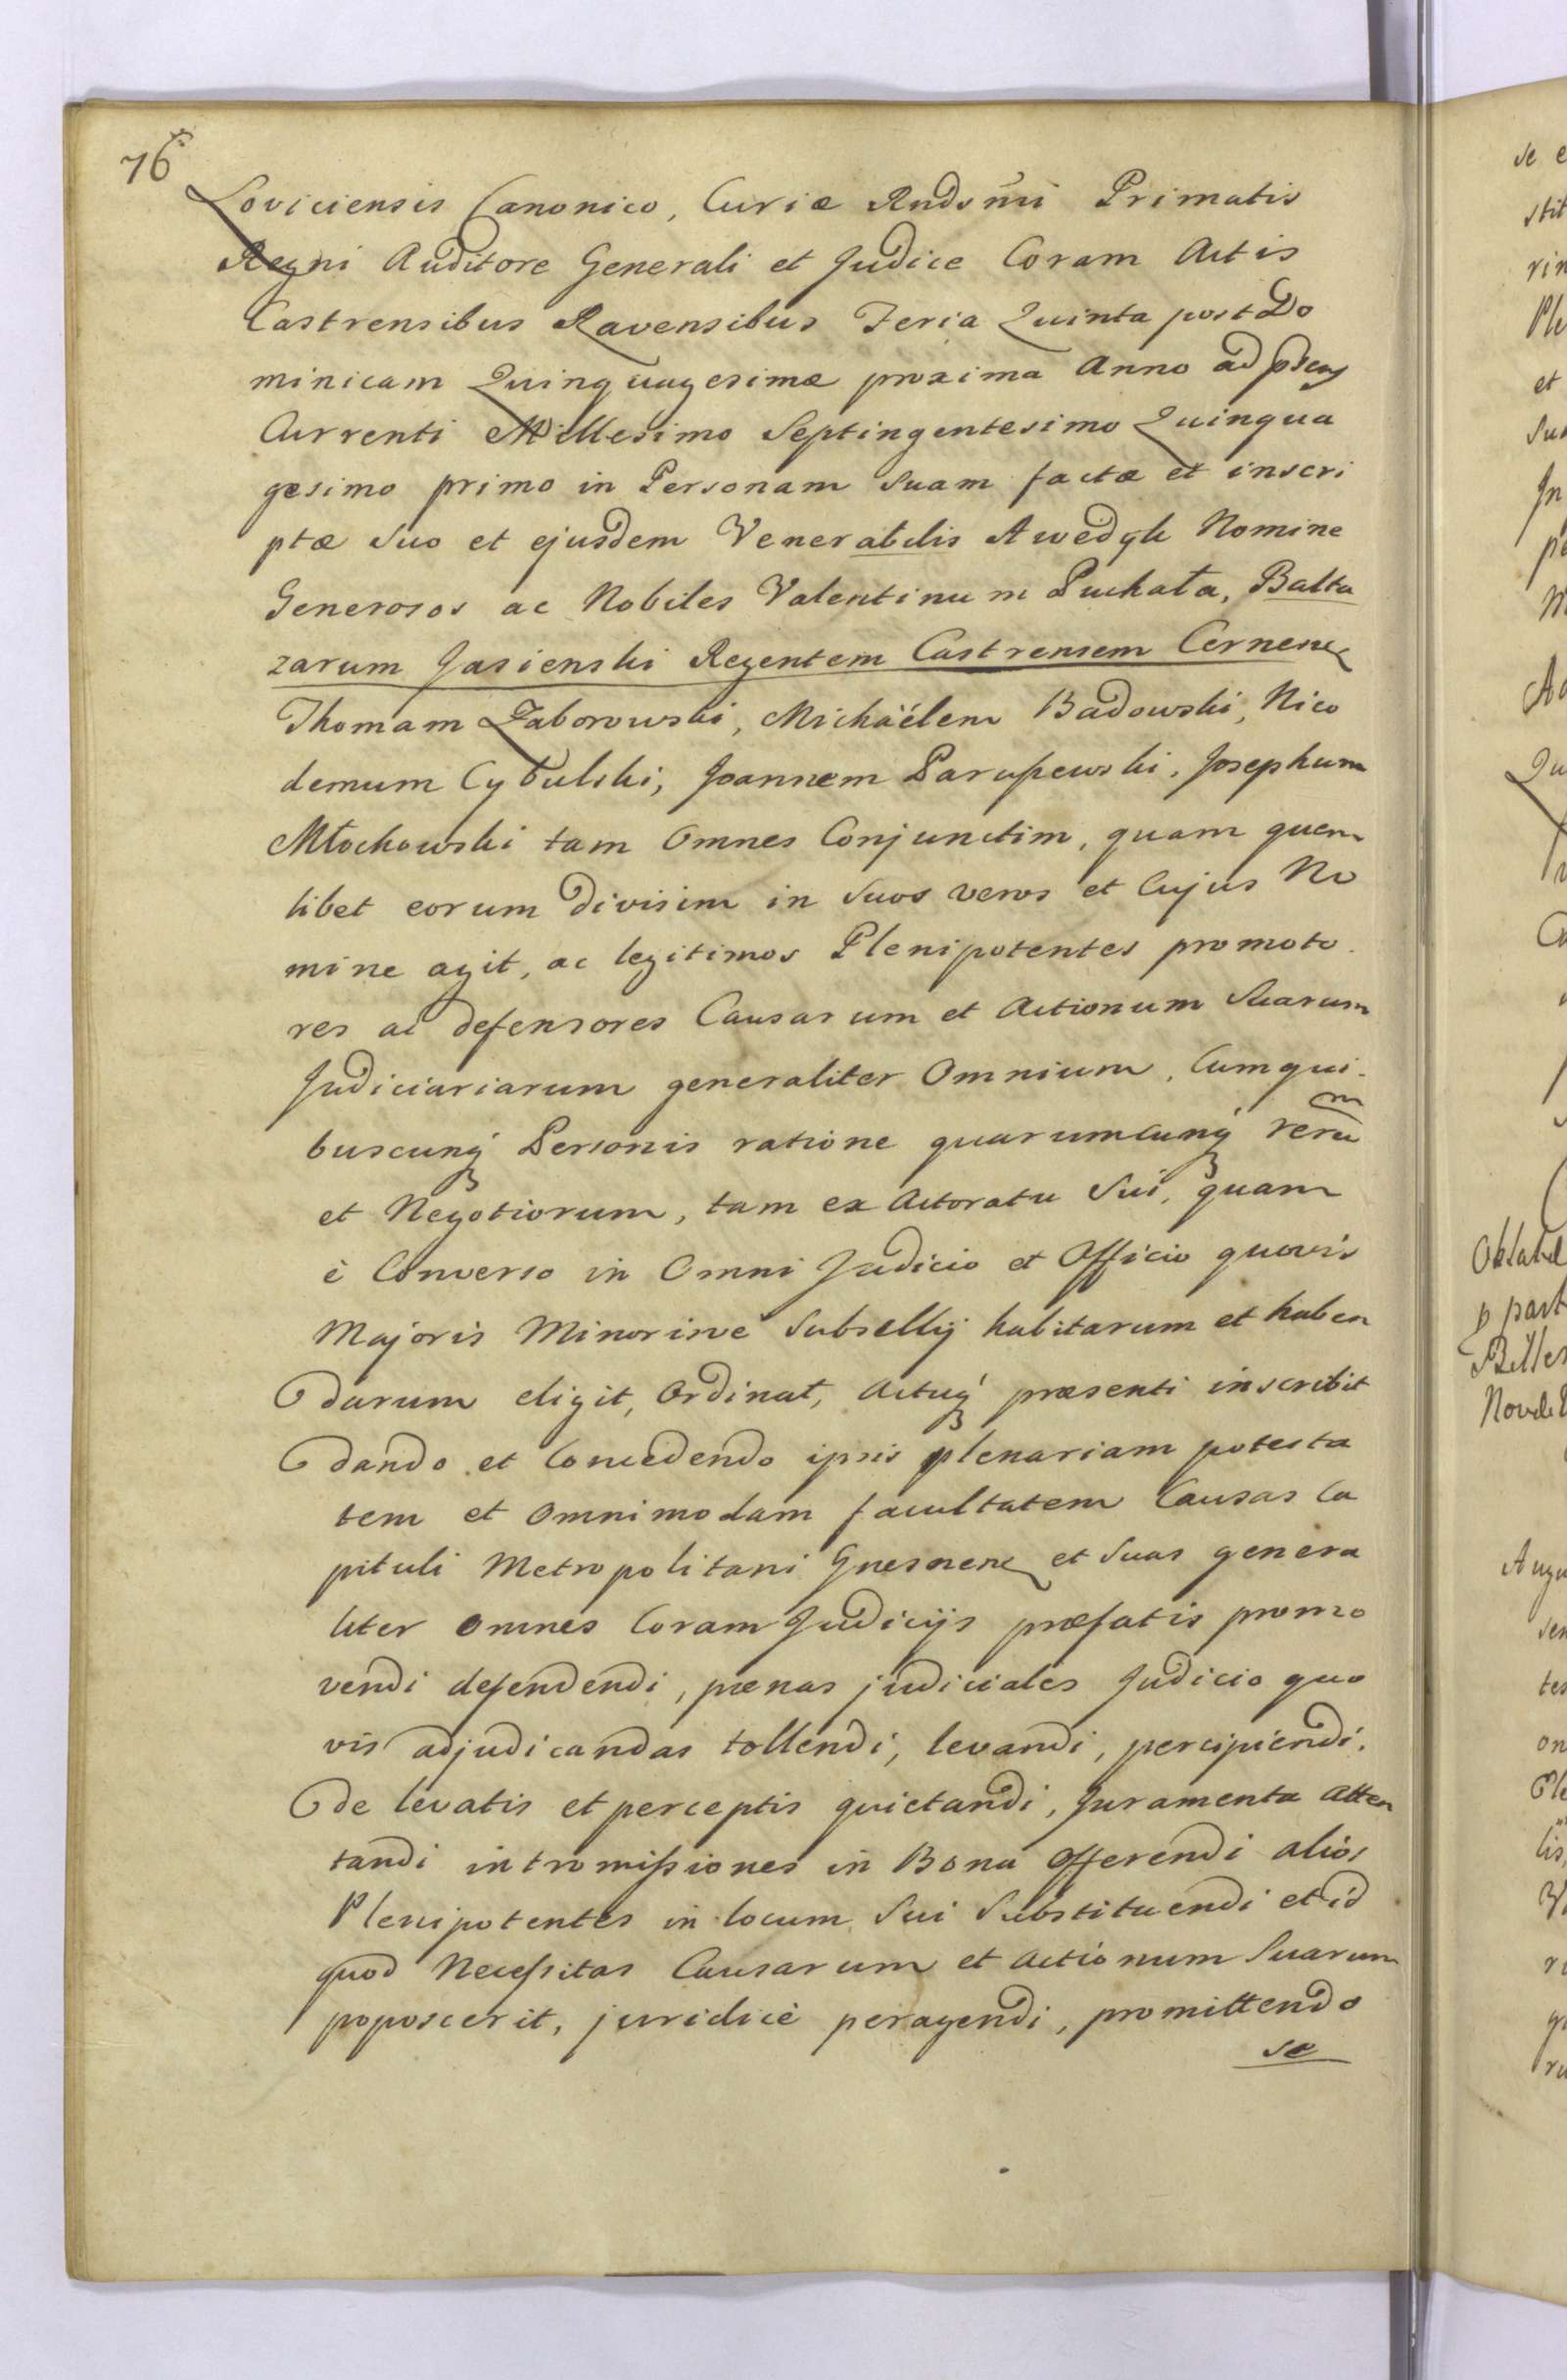 76
Loviciensis Canonico, Curiæ Rndsm̃i Primatis
Regni Auditore Generali et Judice Coram Actis
Castrensibus Ravensibus Feria Quinta post Do
minicam Quinquagesimæ proxima Anno ad
Currenti Millesimo Septingentesimo Quinqua
gesimo primo in Personam Suam factæ et inscri
ptæ Suo et ejusdem Venerabilis Awedyk Nomine
Generosos ac Nobiles Valentinum Puchała, Balta
zarum Jasienski Regentem Castrensem Cernenen
Thomam Zaborowski, Michäélem Badowski, Nico
demum Cybulski, Joannem Parupewski, Josephum
Młochowski tam Omnes Conjunctim, quam quem
libet eorum divisim in Suos veros et Cujus No
mine agit, ac legitimos Plenipotentes promoto
res ac defensores Causarum et Actionum Suarum
Judiciariarum generaliter Omnium, Cum qui
buscunq́ Personis ratione quarumcunq́ reru͞m
et Negotiorum, tam ex Actoratu Sui, quam
è Converso in Omni Judicio et Officio quovis
Majoris Minorisve Subsellij habitarum et haben
darum eligit, Ordinat, Actuq́ præsenti inscribit
dando et Concedendo ipsis plenariam potesta
tem et Omnimodam facultatem Causas Ca
pituli Metropolitani Gnesnen et Suas genera
liter omnes Coram Judicijs præfatis promo
vendi defendendi, pœnas judiciales Judicio quo
vis adjudicandas tollendi, levandi, percipiendi.
de levatis et perceptis quietandi, Juramenta Atten
tandi intromissiones in Bona Offerendi alios
Plenipotentes in locum Sui Substituendi et id
quod Necessitas Causarum et Actionum Suarum
poposcerit, juridicè peragendi, promittendo
se